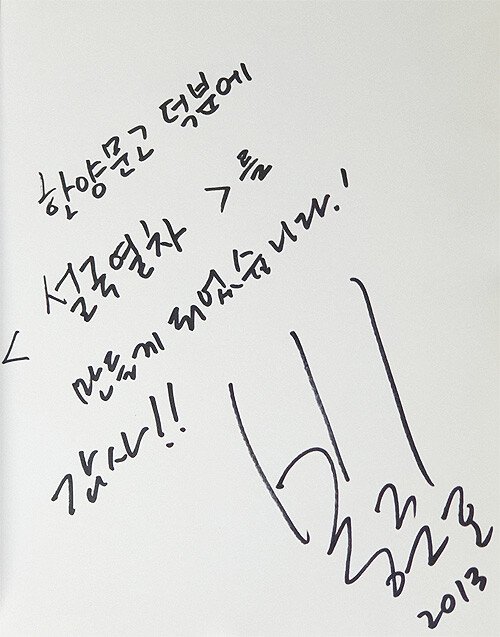 한양문고 덕분에
<설국열차>를
만들게 되었습니다!
감사!!
봉준호
2013